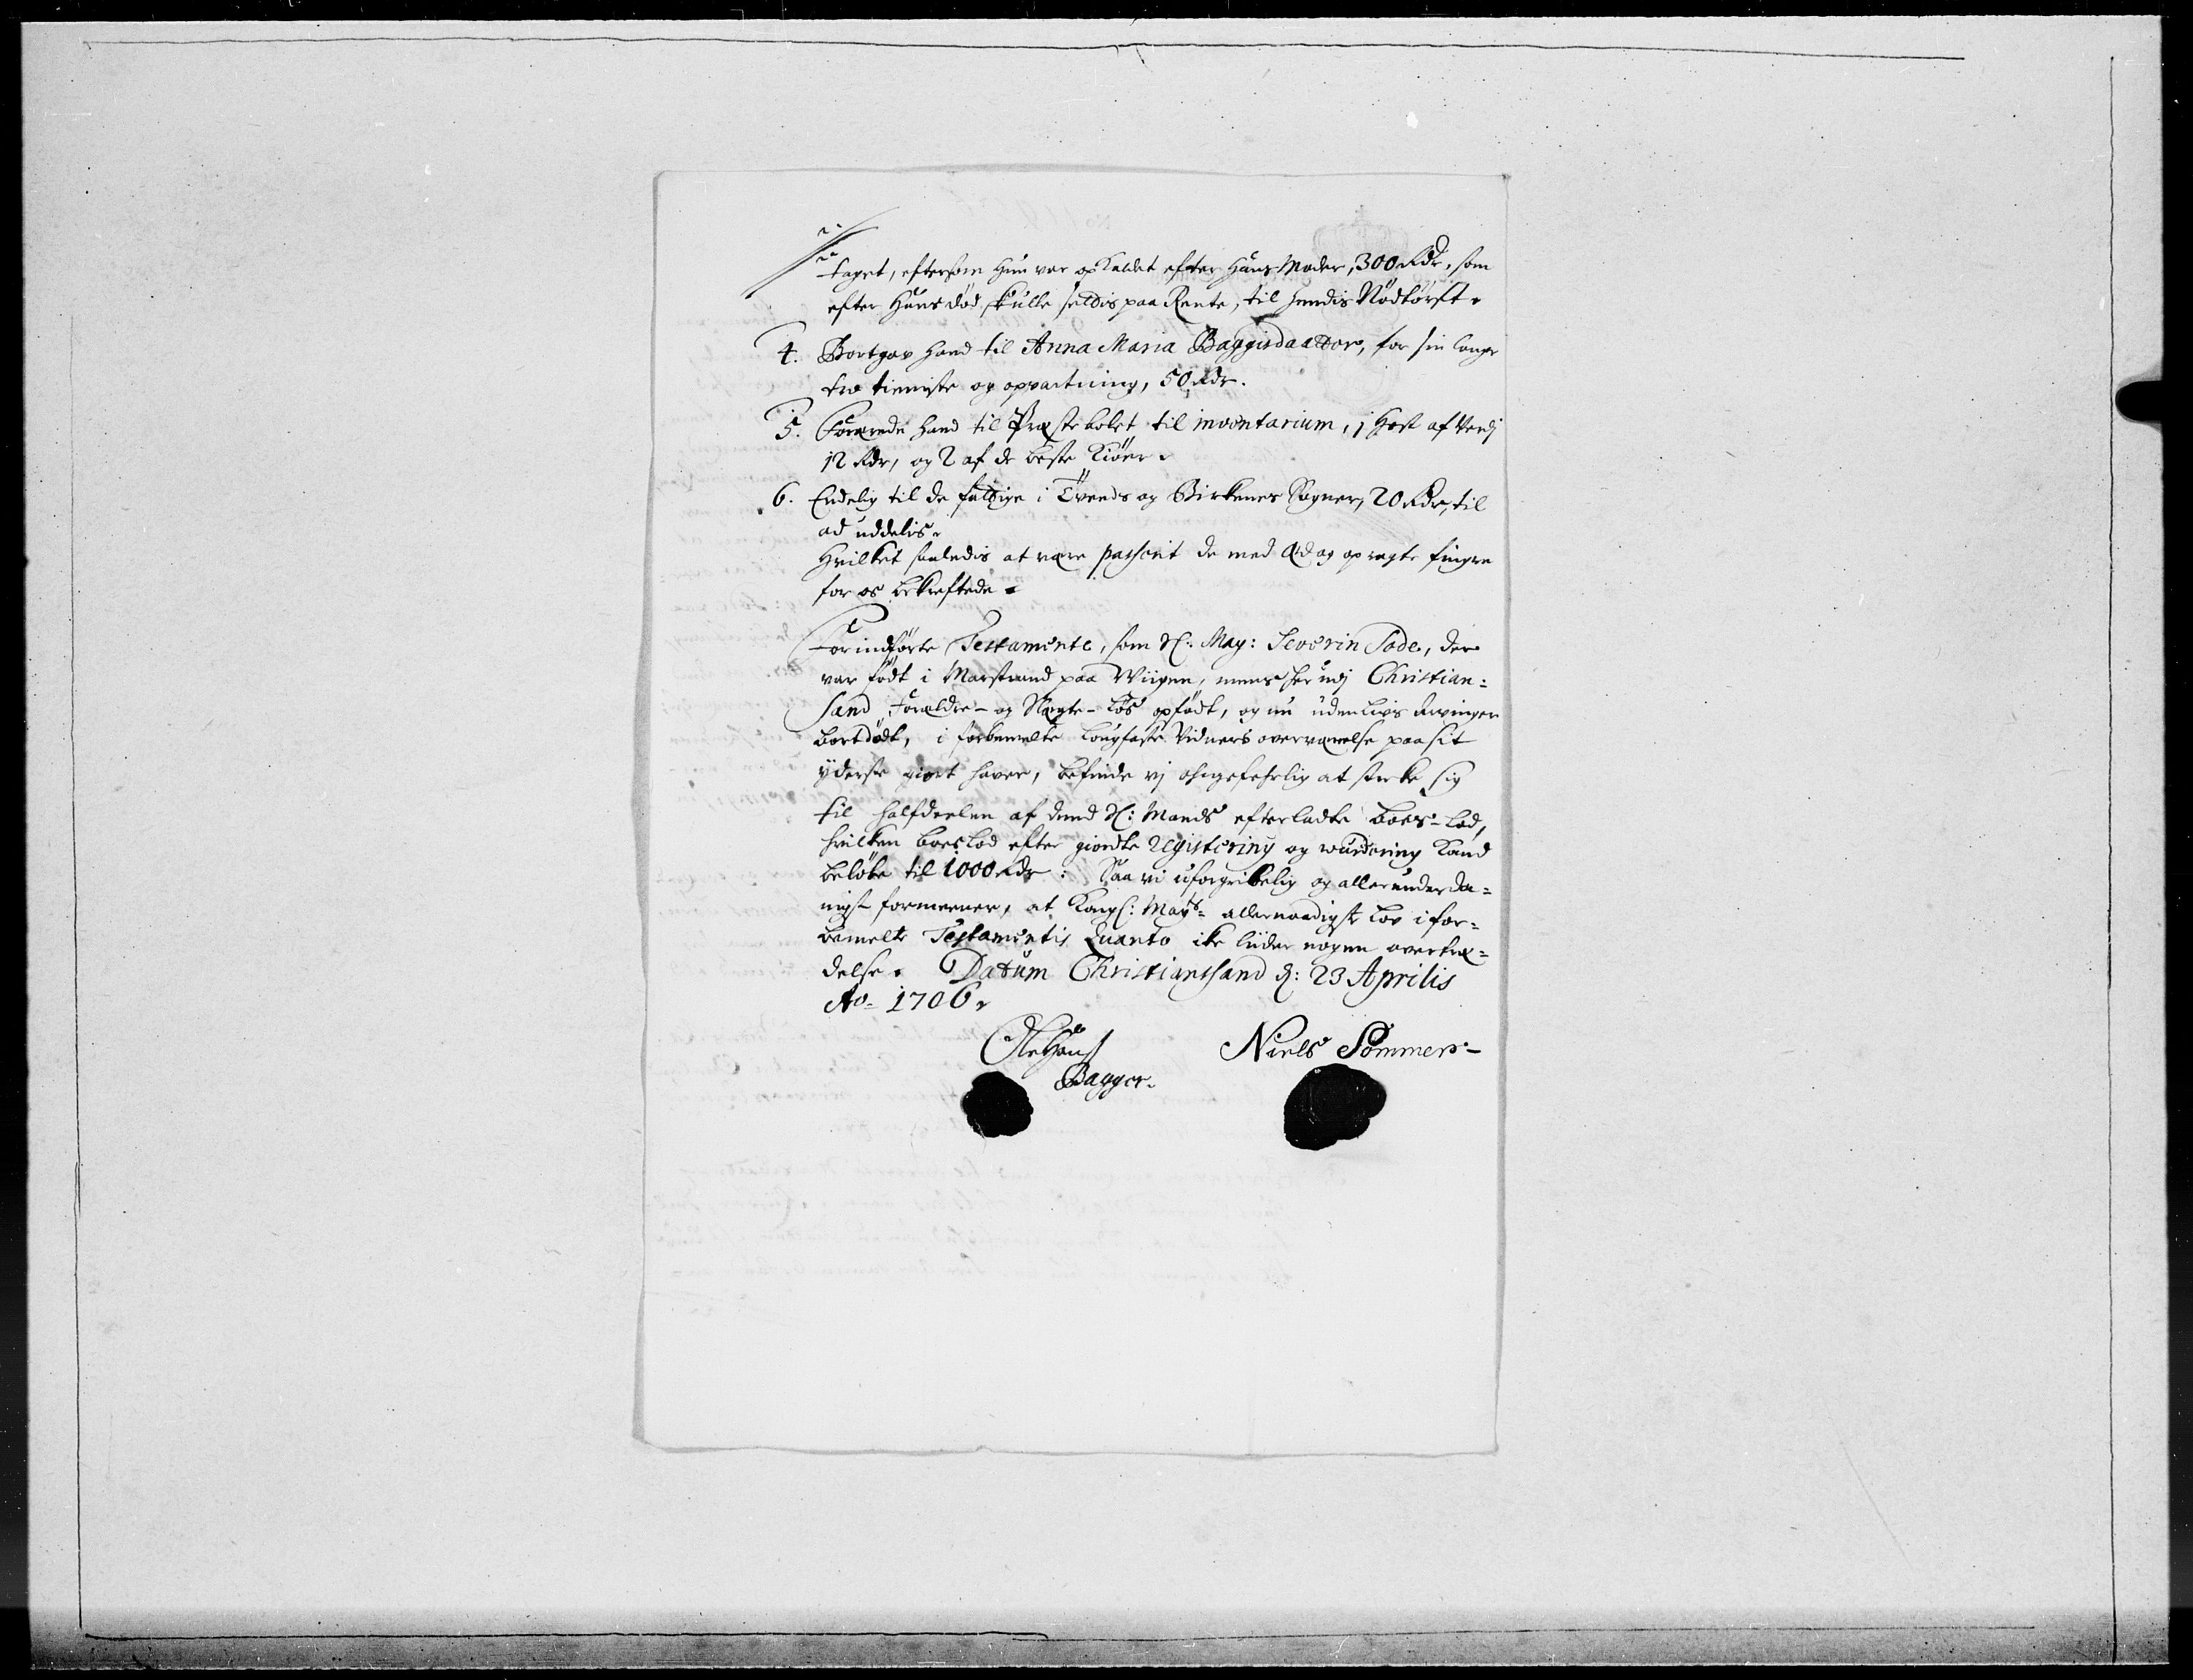 taget, eftersom hun var opkaldet efter hans Moder, 300 Rdr. som
efter hans død skulle settis paa Rente, til hendis Nødtørft.
4. Bortgav hand til Anna Maria Baggisdaatter, for sin lange
tro tieniste og opvartning, 50 Rdr.
5. Forærede hand til Præstebolet til inventarium, 1 Hest af Verdj
12 Rdr, og 2 af de beste Kiöer.
6. Endelig til de fattige i Tveeds og Birkenes Sogner, 20 Rdr, til
ad uddelis.
Hvilket saaledis at være passerit de med Eed og opragte fingre
for os bekreftede.
Forindførte Testamente, som Sl. May: Severin Tode, der
var født i Marstrand paa Wiigen, mens her udj Christian=
sand Forældre- og Slegte-løs opfödt, og nu uden Livs Arvinger
bortdödt, i forbemelte Lougfaste Vidners overværelse paa sit
yderste giort haver, befinde vj ohngefehrlig at strecke sig
til halfdeelen af dend Sl: Mands efterladte Boes-Lod,
hvilken boeslod efter giordte registering og wurdering kand
beløbe til 1000 Rdr: Saa vi uforgribelig og allerunderda=
nigst formeener, at Kongl: Mayts= allernaadigste Lov i for=
bemelte Testamentis Quanto ike lider nogen overtræ=
delse. Datum Christiansand d: 23 Aprilis
Ao= 1706.
Ole Hans Niels Sommer
Bagger.